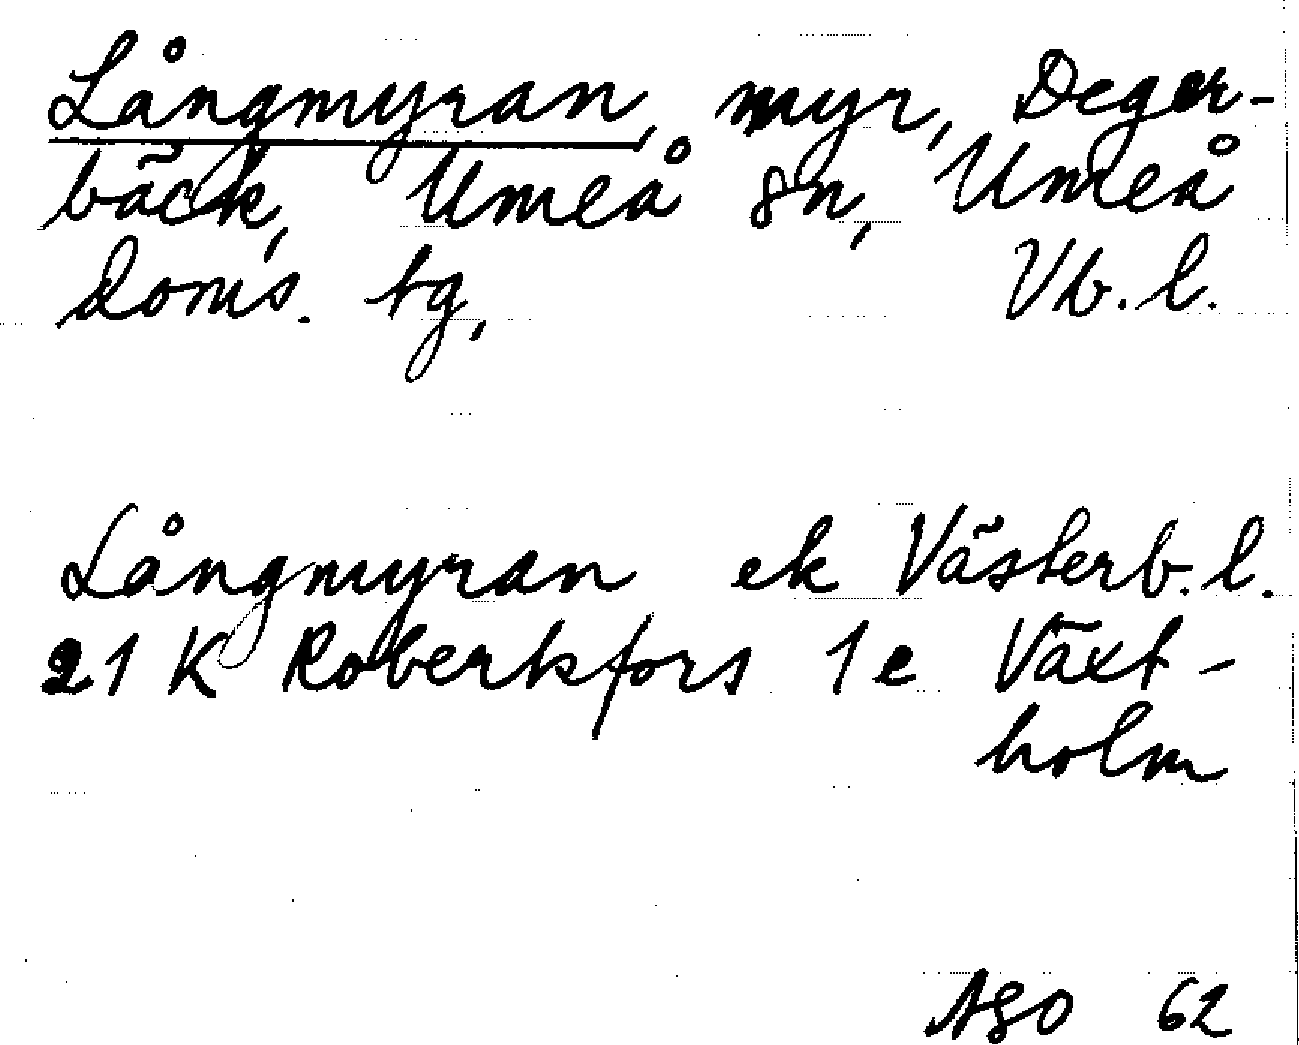 Långmyran, myr, Deger-
bäck, Umeå sn, Umeå
Doms. tg, Vb. l.
Långmyran ek Västerb. l.
21 K Robertsfors 1 e Växt-
holm
ASO 62